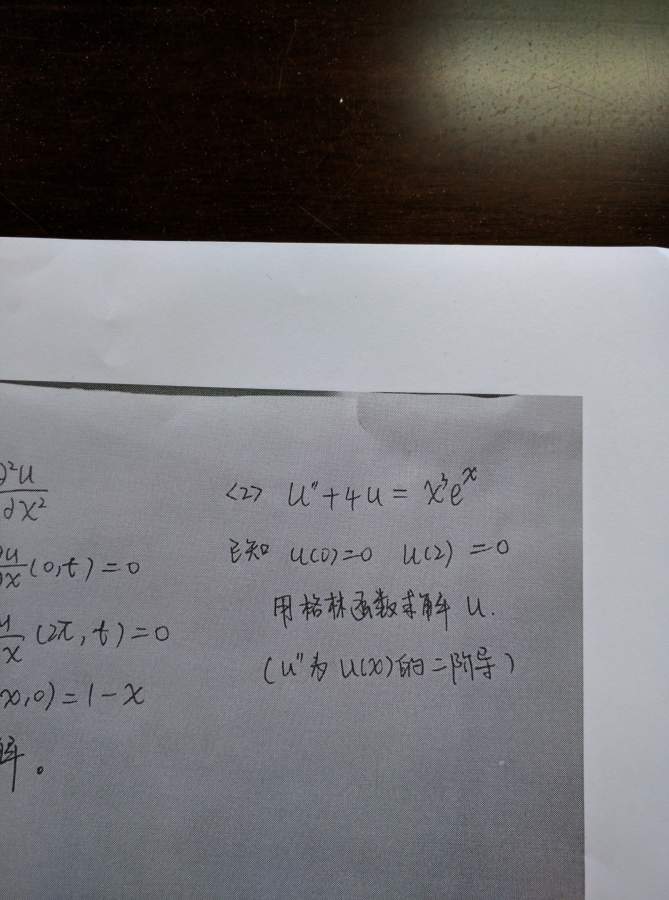 ∂²u
∂x²
∂u/∂x (0,t)=0
u/x (2π,t)=0
x,0)=1-x
解。
<2> u"+4u=x³eˣ
已知 u(0)=0 u(2)=0
用格林函数求解 u.
(u"为u(x)的二阶导)